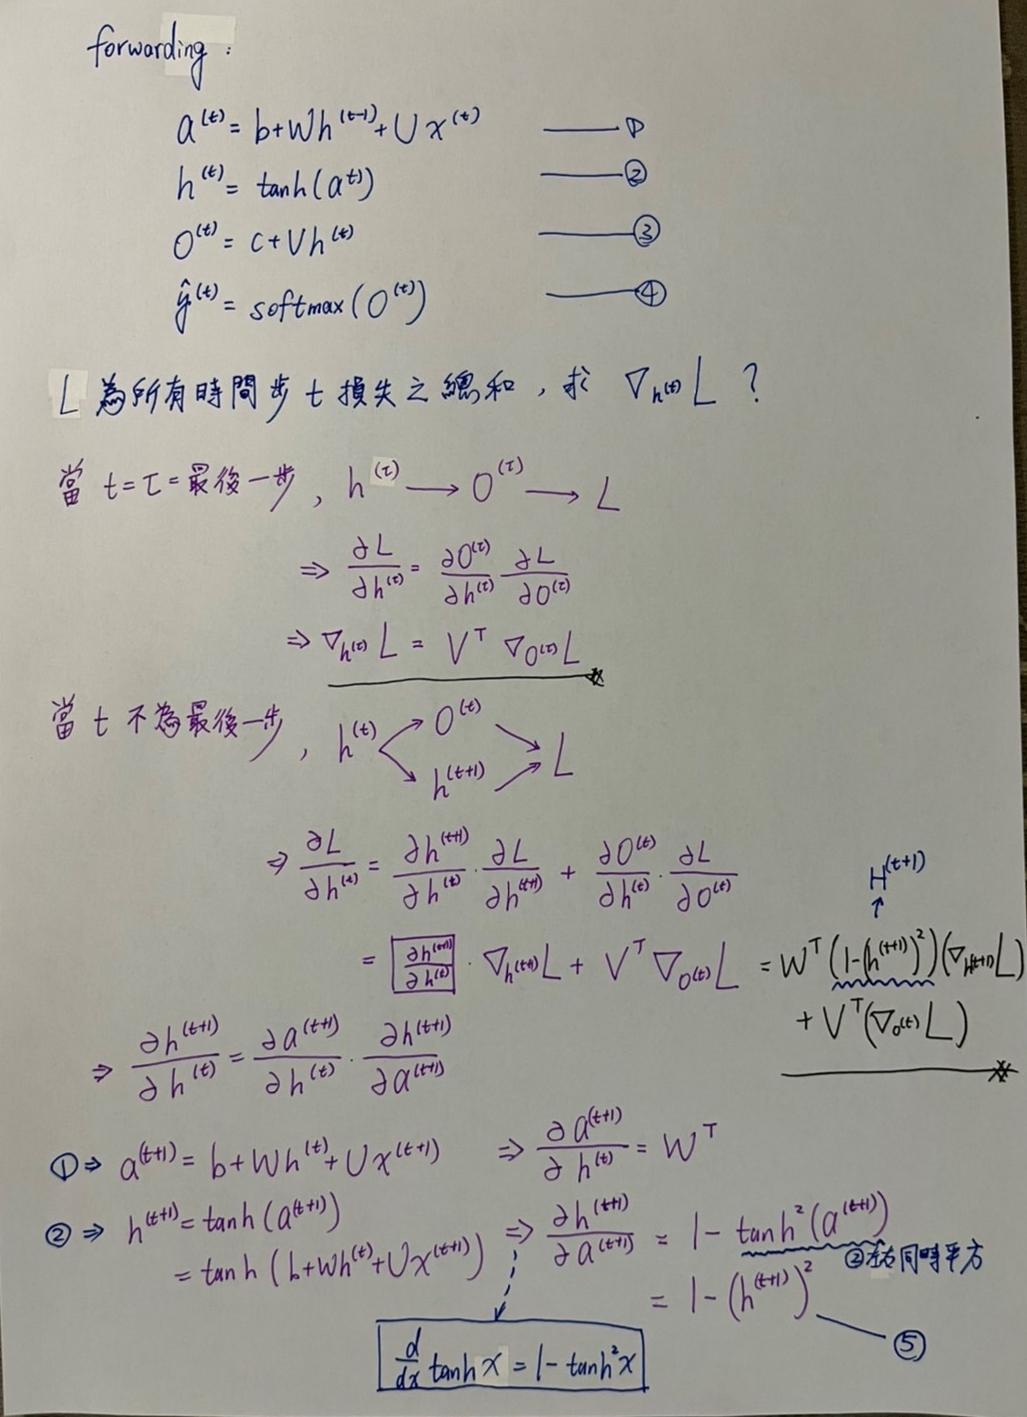 forwarding :
a^(t) = b+Wh^(t-1)+Ux^(t) —— ①
h^(t) = tanh(a^t)) —— ②
O^(t) = c+Vh^(t) —— ③
ŷ^(t) = softmax(O^(t)) —— ④
L 為所有時間步 t 損失之總和, 求 ∇_h^(t) L ?
當 t=τ=最後一步, h^(τ) → O^(τ) → L
⇒ ∂L/∂h^(τ) = ∂O^(τ)/∂h^(τ) ∂L/∂O^(τ)
⇒ ∇_h^(τ) L = V^T ∇_O^(τ) L
當 t 不為最後一步, h^(t) → O^(t) → L
h^(t) → h^(t+1) → L
⇒ ∂L/∂h^(t) = ∂h^(t+1)/∂h^(t) · ∂L/∂h^(t+1) + ∂O^(t)/∂h^(t) · ∂L/∂O^(t)
H^(t+1)
↑
= ∂h^(t+1)/∂h^(t) · ∇_h^(t+1) L + V^T ∇_O^(t) L = W^T (1-(h^(t+1))^2)(∇_h^(t+1) L)
+ V^T(∇_O^(t) L)
⇒ ∂h^(t+1)/∂h^(t) = ∂a^(t+1)/∂h^(t) · ∂h^(t+1)/∂a^(t+1)
① ⇒ a^(t+1) = b+Wh^(t)+Ux^(t+1) ⇒ ∂a^(t+1)/∂h^(t) = W^T
② ⇒ h^(t+1) = tanh(a^(t+1)) ⇒ ∂h^(t+1)/∂a^(t+1) = 1 - tanh^2(a^(t+1))
= tanh(b+Wh^(t)+Ux^(t+1))
②左右同時平方
= 1-(h^(t+1))^2 —— ⑤
d/dx tanh x = 1-tanh^2 x